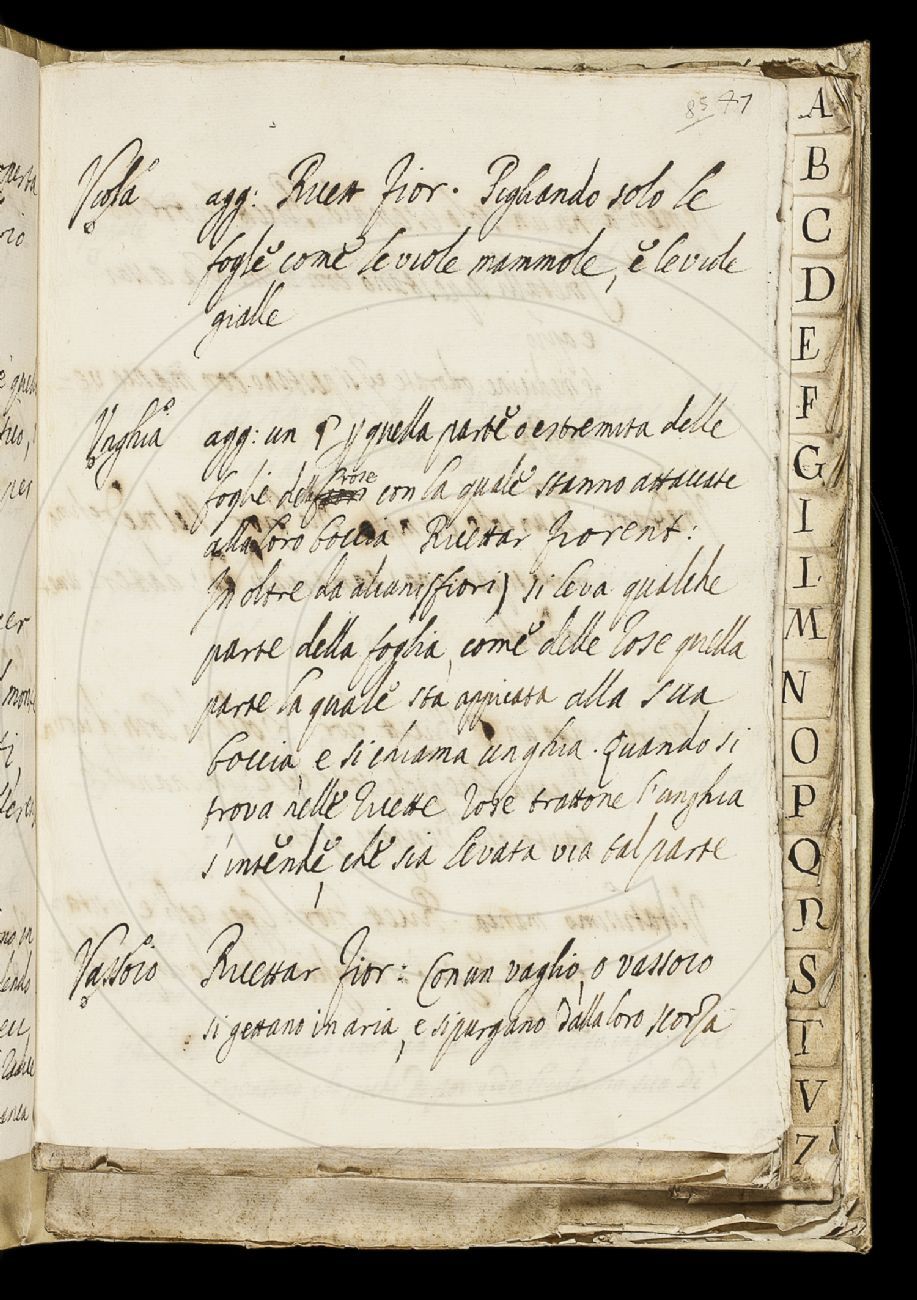 85 47
Viola agg: Ricett Fior. Pigliando solo le
foglie come le viole mammole, e le viole
gialle
Unghia agg: un § quella parte o estremita delle
foglie delle rose con la quale stanno attaccate
alla loro boccia Ricettar Fiorent:
Inoltre da alcuni (fiori) si leva qualche
parte della foglia, come delle rose quella
parte la quale sta appicata alla sua
boccia, e si chiama unghia. Quando si
trova nelle ricette rose trattone l'unghia
s'intende, che sia levata via tal parte
Vassoio Ricettar Fior: Con un vaglio, o vassoio
si gettano in aria, e si purgano dalla loro scorza
A
B
C
D
E
F
G
I
L
M
N
O
P
Q
R
S
T
V
Z